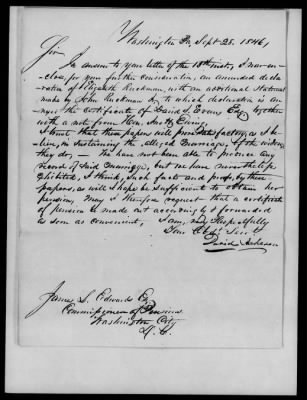 Washington Pa, Sept 28. 1846,
Sir
In answer to your letter of the 18th inst, I now en-
-close, for your further consideration, an amended decla-
-ration of Elizabeth Ruckman, with an additional statement
made by John Ruckman to which declaration is an-
-nexed the certificate of David S. Evans Esq together
with a note from Hon,
I trust that these papers will prove satisfactory, as I be-
lieve, in sustaining the alleged marriage, of the widow,
they do, We have not been able to procure any
record of said marriage, but we have nevertheless
exhibited, I think, such facts and proofs, by these
papers, as will I hope be sufficient to obtain her
pension, May I therefore request that a certificate
of pension be made out accordingly & forwarded
as soon as convenient, I am, very Respectfully
Your Obt. Serv.t
David Acheson
James L. Edwards Esq
Commissioner of Pensions
Washington City
D. C.